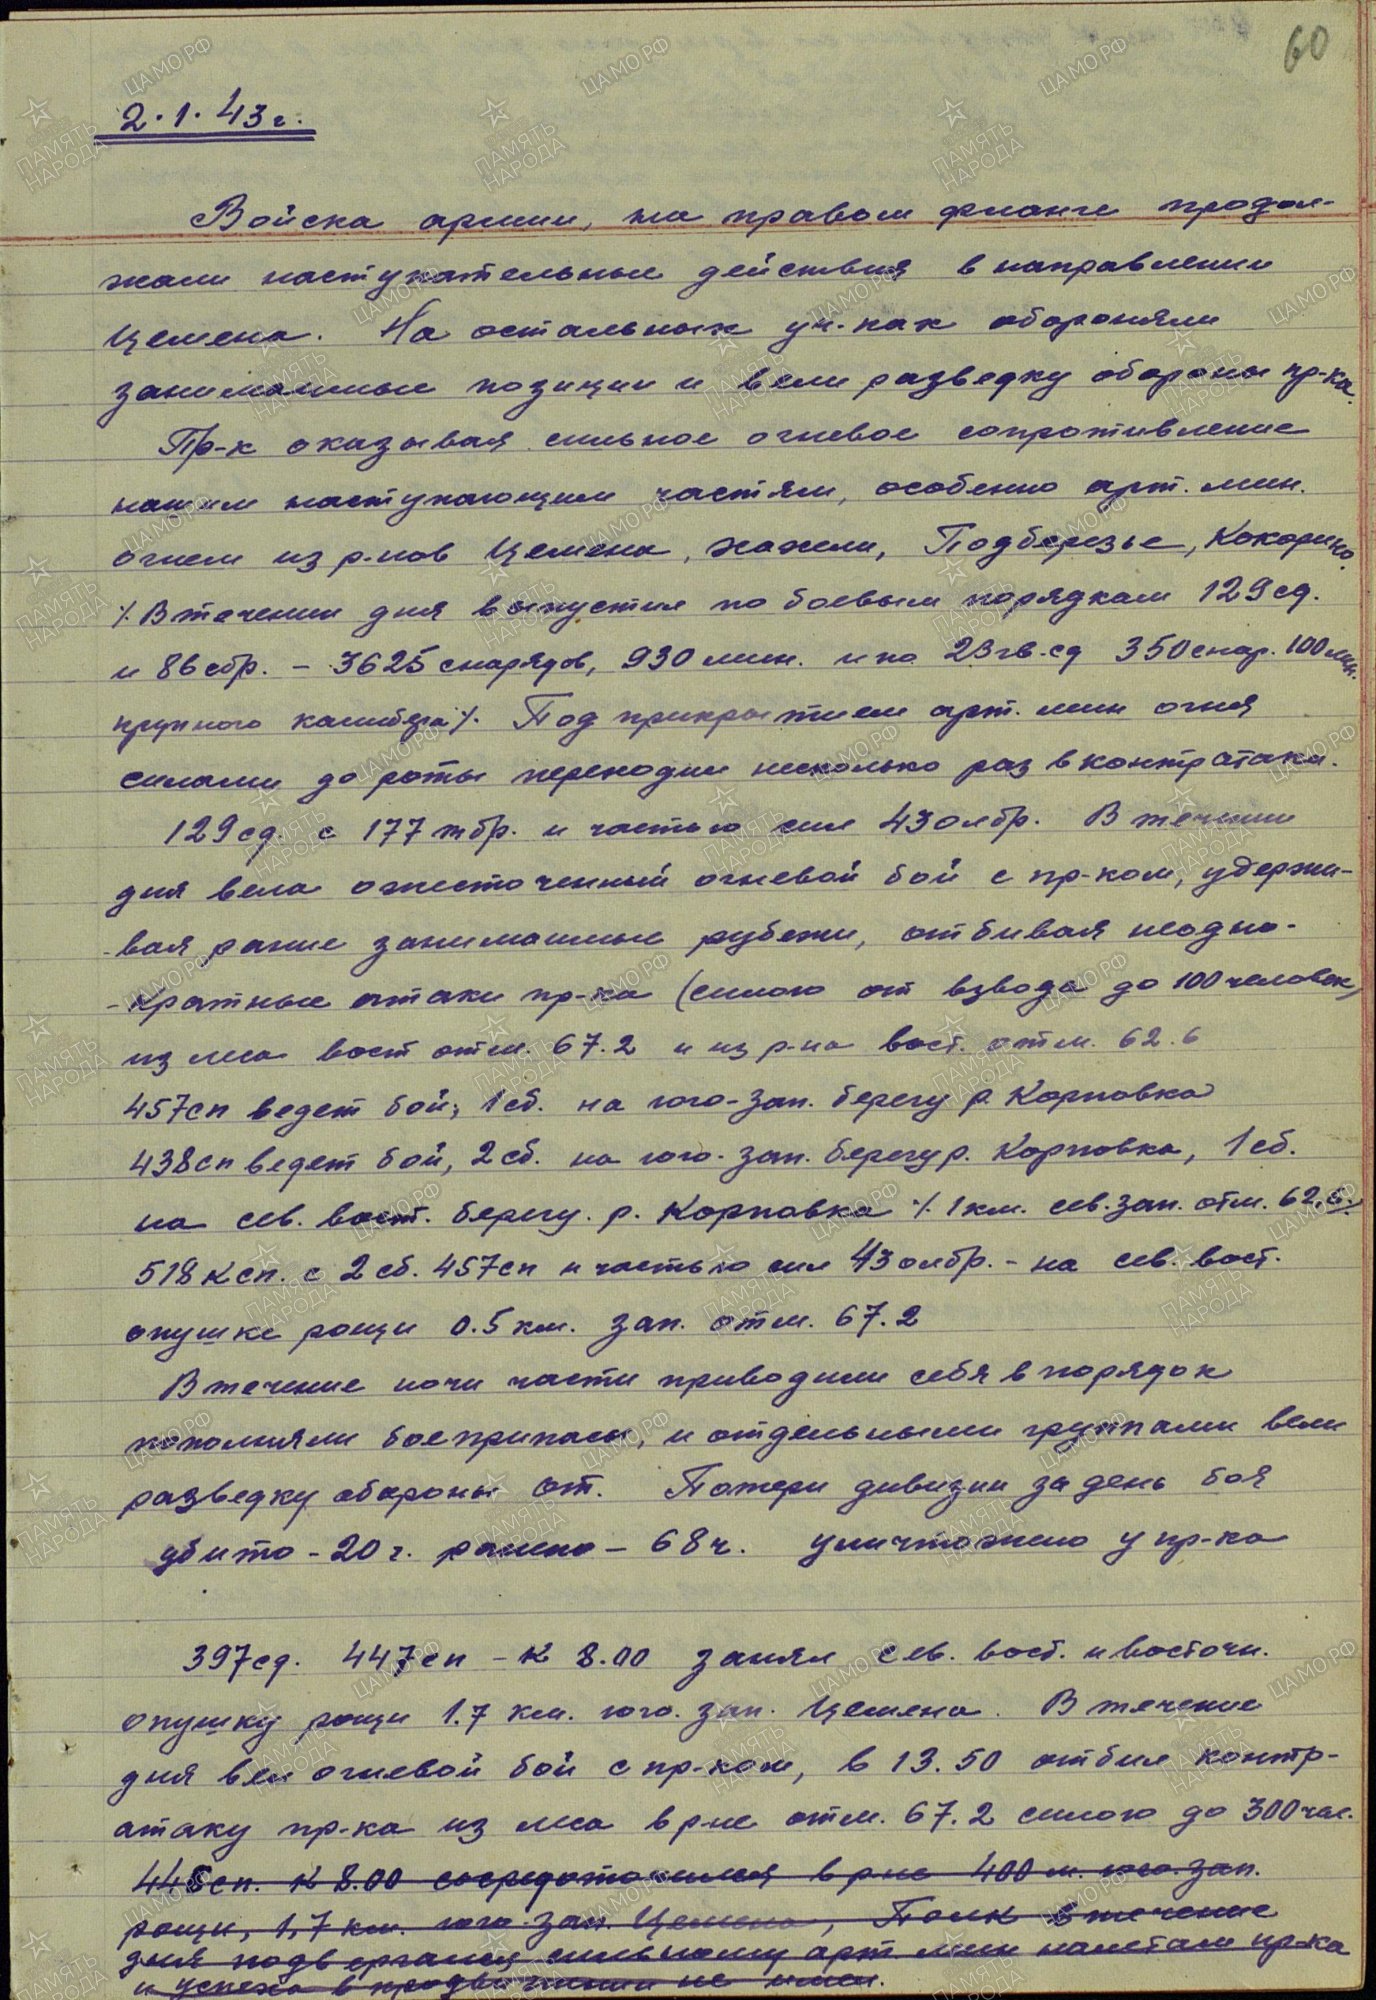 60
2.1.43г.
Войска армии, на правом фланге продол-
жали наступательные действия в направлении
Цемена. На остальных уч-ках обороняли
занимаемые позиции и вели разведку обороны пр-ка.
Пр-к оказывая сильное огневое сопротивление
нашим наступающим частям, особенно арт. мин.
огнем из р-нов Цемена, Хахели, Подберезье, Кокорино.
/. В течении дня выпустил по боевым порядкам 129сд.
и 86сбр. – 3625 снарядов, 930 мин. и по 23гв.сд 350 снар. 100 мин.
крупного калибра /. Под прикрытием арт. мин огня
силами до роты переходил несколько раз в контратаки.
129сд. с 177тбр. и частью сил 43олбр. В течении
дня вела ожесточенный огневой бой с пр-ком, удержи-
-вая ранее занимаемые рубежи, отбивая неодно-
-кратные атаки пр-ка (силою от взвода до 100 человек)
из леса вост отм. 67.2 и из р-на вост. отм. 62.6
457сп ведет бой, 1сб. на юго-зап. берегу р. Корповка
438сп ведет бой, 2сб. на юго-зап. берегу р. Корповка, 1сб.
на сев. вост. берегу. р. Корповка /. 1км. сев. зап. отм. 62.6./
518ксп. с 2сб. 457сп и частью сил 43олбр. – на сев. вост.
опушке рощи 0.5км. зап. отм. 67.2
В течение ночи части приводили себя в порядок
пополняли боеприпасы, и отдельными группами вели
разведку обороны от. Потери дивизии за день боя
убито – 20ч. ранено – 68ч. уничтожено у пр-ка
397сд. 447сп – к 8.00 занял сев. вост. и восточн.
опушку рощи 1.7 км. юго. зап. Цемена. В течение
дня вел огневой бой с пр-ком, в 13.50 отбил контр-
атаку пр-ка из леса в р-не отм. 67.2 силою до 300 чел.
448сп. к 8.00 сосредоточился в р-не 400 м. юго. зап.
рощи, 1,7 км. юго. зап. Цемена, Полк в течение
дня подвергался сильному арт мин налетам пр-ка
и успеха в продвижении не имел.